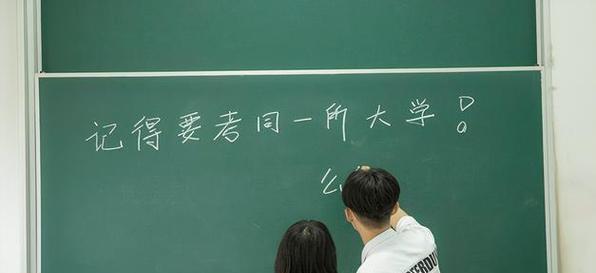 记得要考同一所大学!
么